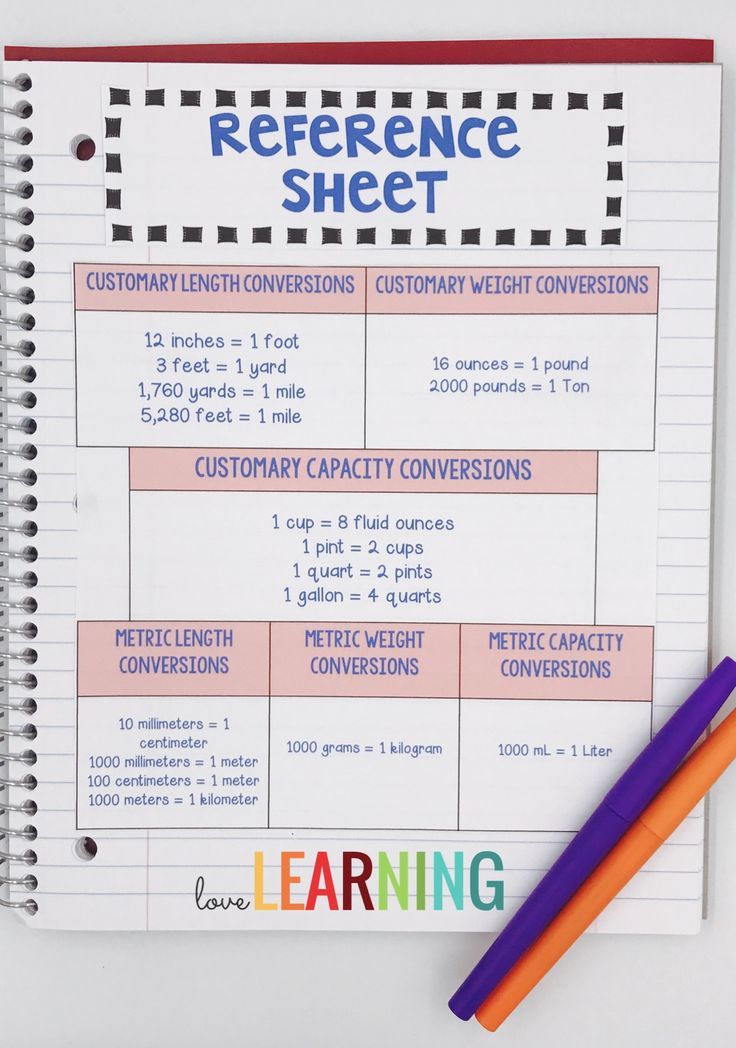 REFERENCE
SHEET
CUSTOMARY LENGTH CONVERSIONS
12 inches = 1 foot
3 feet = 1 yard
1,760 yards = 1 mile
5,280 feet = 1 mile
CUSTOMARY WEIGHT CONVERSIONS
16 ounces = 1 pound
2000 pounds = 1 Ton
CUSTOMARY CAPACITY CONVERSIONS
1 cup = 8 fluid ounces
1 pint = 2 cups
1 quart = 2 pints
1 gallon = 4 quarts
METRIC LENGTH
CONVERSIONS
10 millimeters = 1
centimeter
1000 millimeters = 1 meter
100 centimeters = 1 meter
1000 meters = 1 kilometer
METRIC WEIGHT
CONVERSIONS
1000 grams = 1 kilogram
METRIC CAPACITY
CONVERSIONS
1000 mL = 1 Liter
love LEARNING